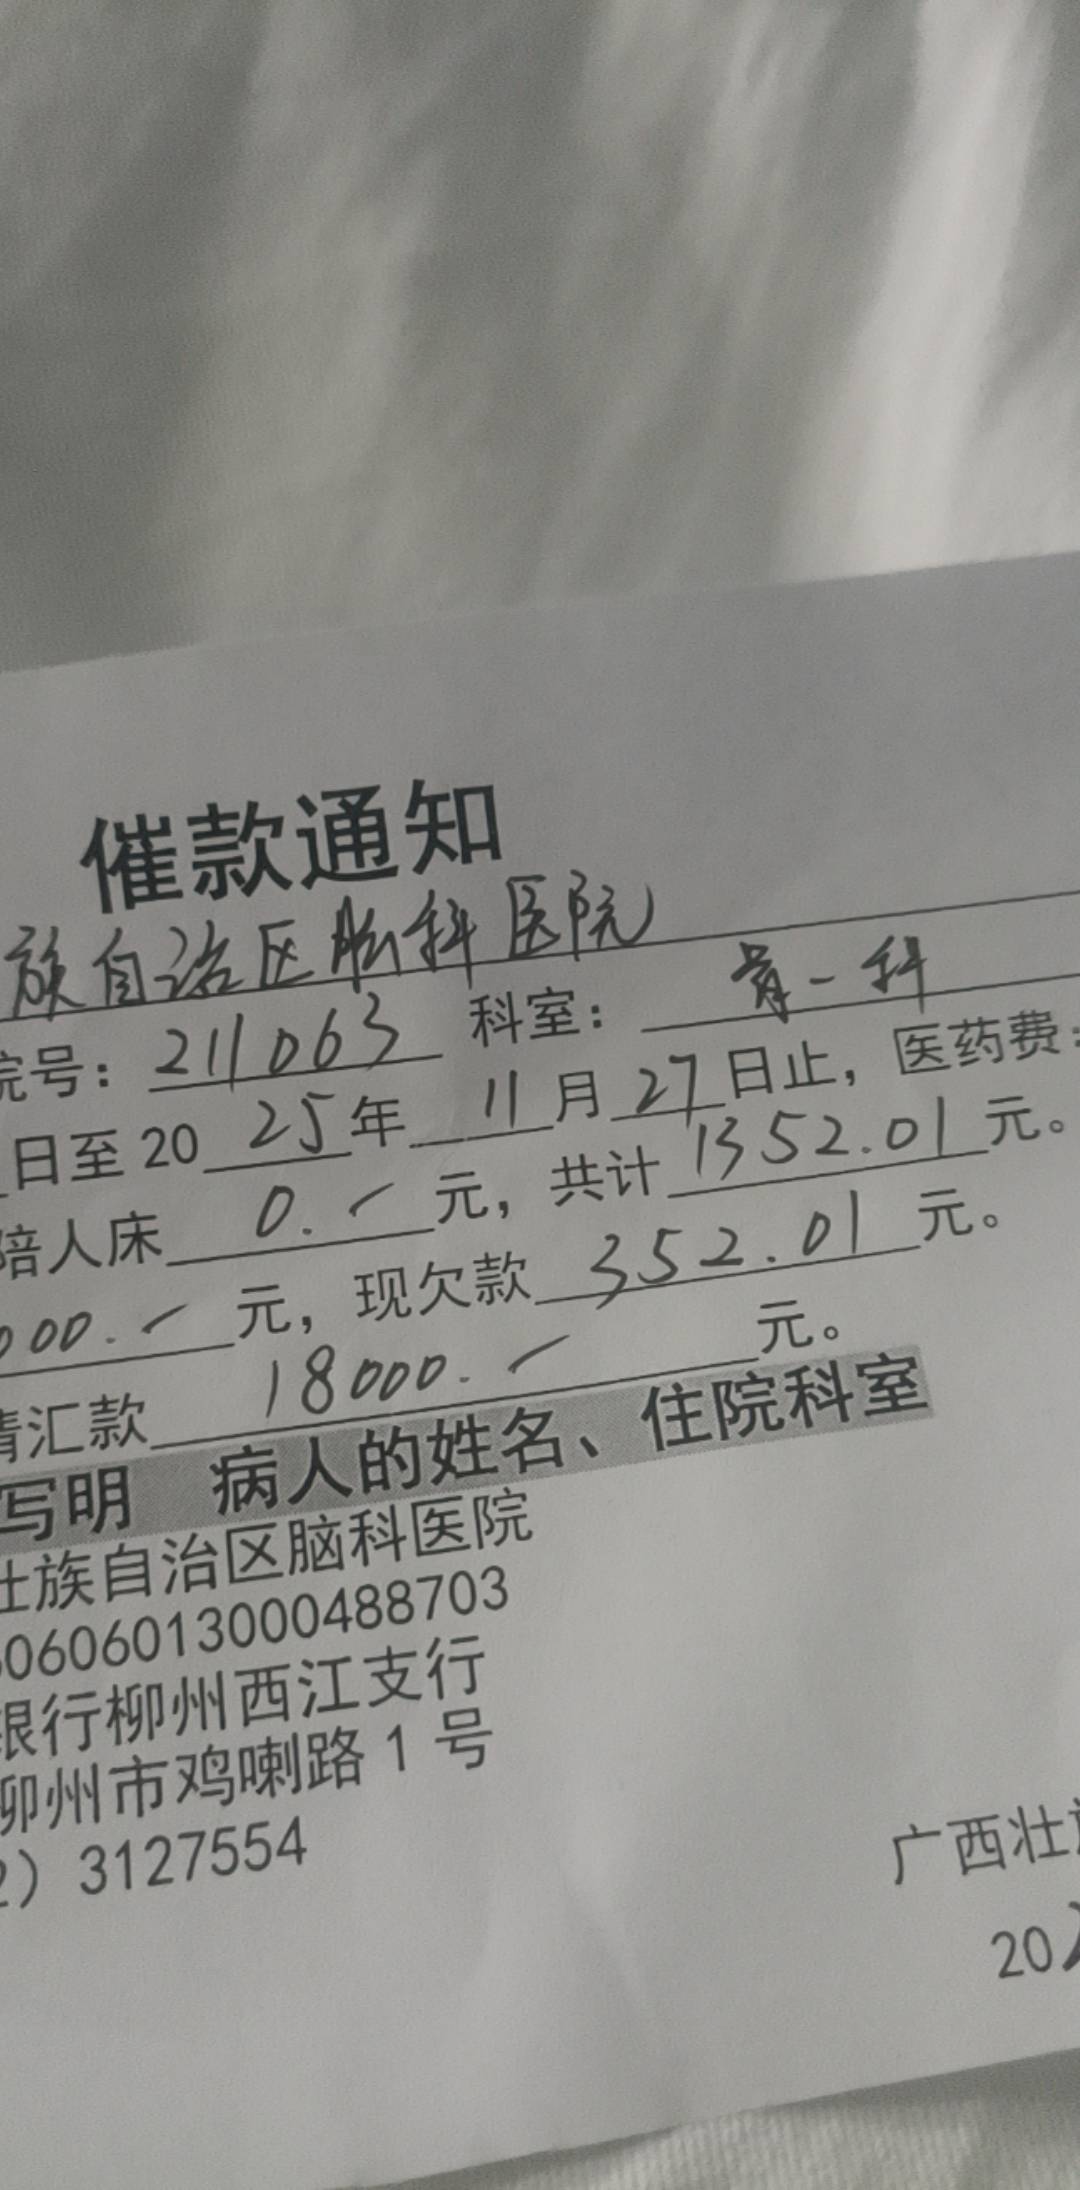 催款通知
族自治区脑科医院
院号：211063 科室：骨一科
日至2025年11月27日止，医药费：
陪人床0.-元，共计1352.01元。
000.-元，现欠款352.01元。
请汇款18000.-元。
写明 病人的姓名、住院科室
壮族自治区脑科医院
606013000488703
银行柳州西江支行
柳州市鸡喇路1号
2）3127554
广西壮
20